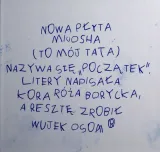 NOWA PŁYTA
MIŁOSHA
(TO MÓJ TATA)
NAZYWA SIĘ „POCZĄTEK".
LITERY NAPISAŁA
KORA RÓŻA BORYCKA,
A RESZTĘ ZROBIŁ
WUJEK OSOM